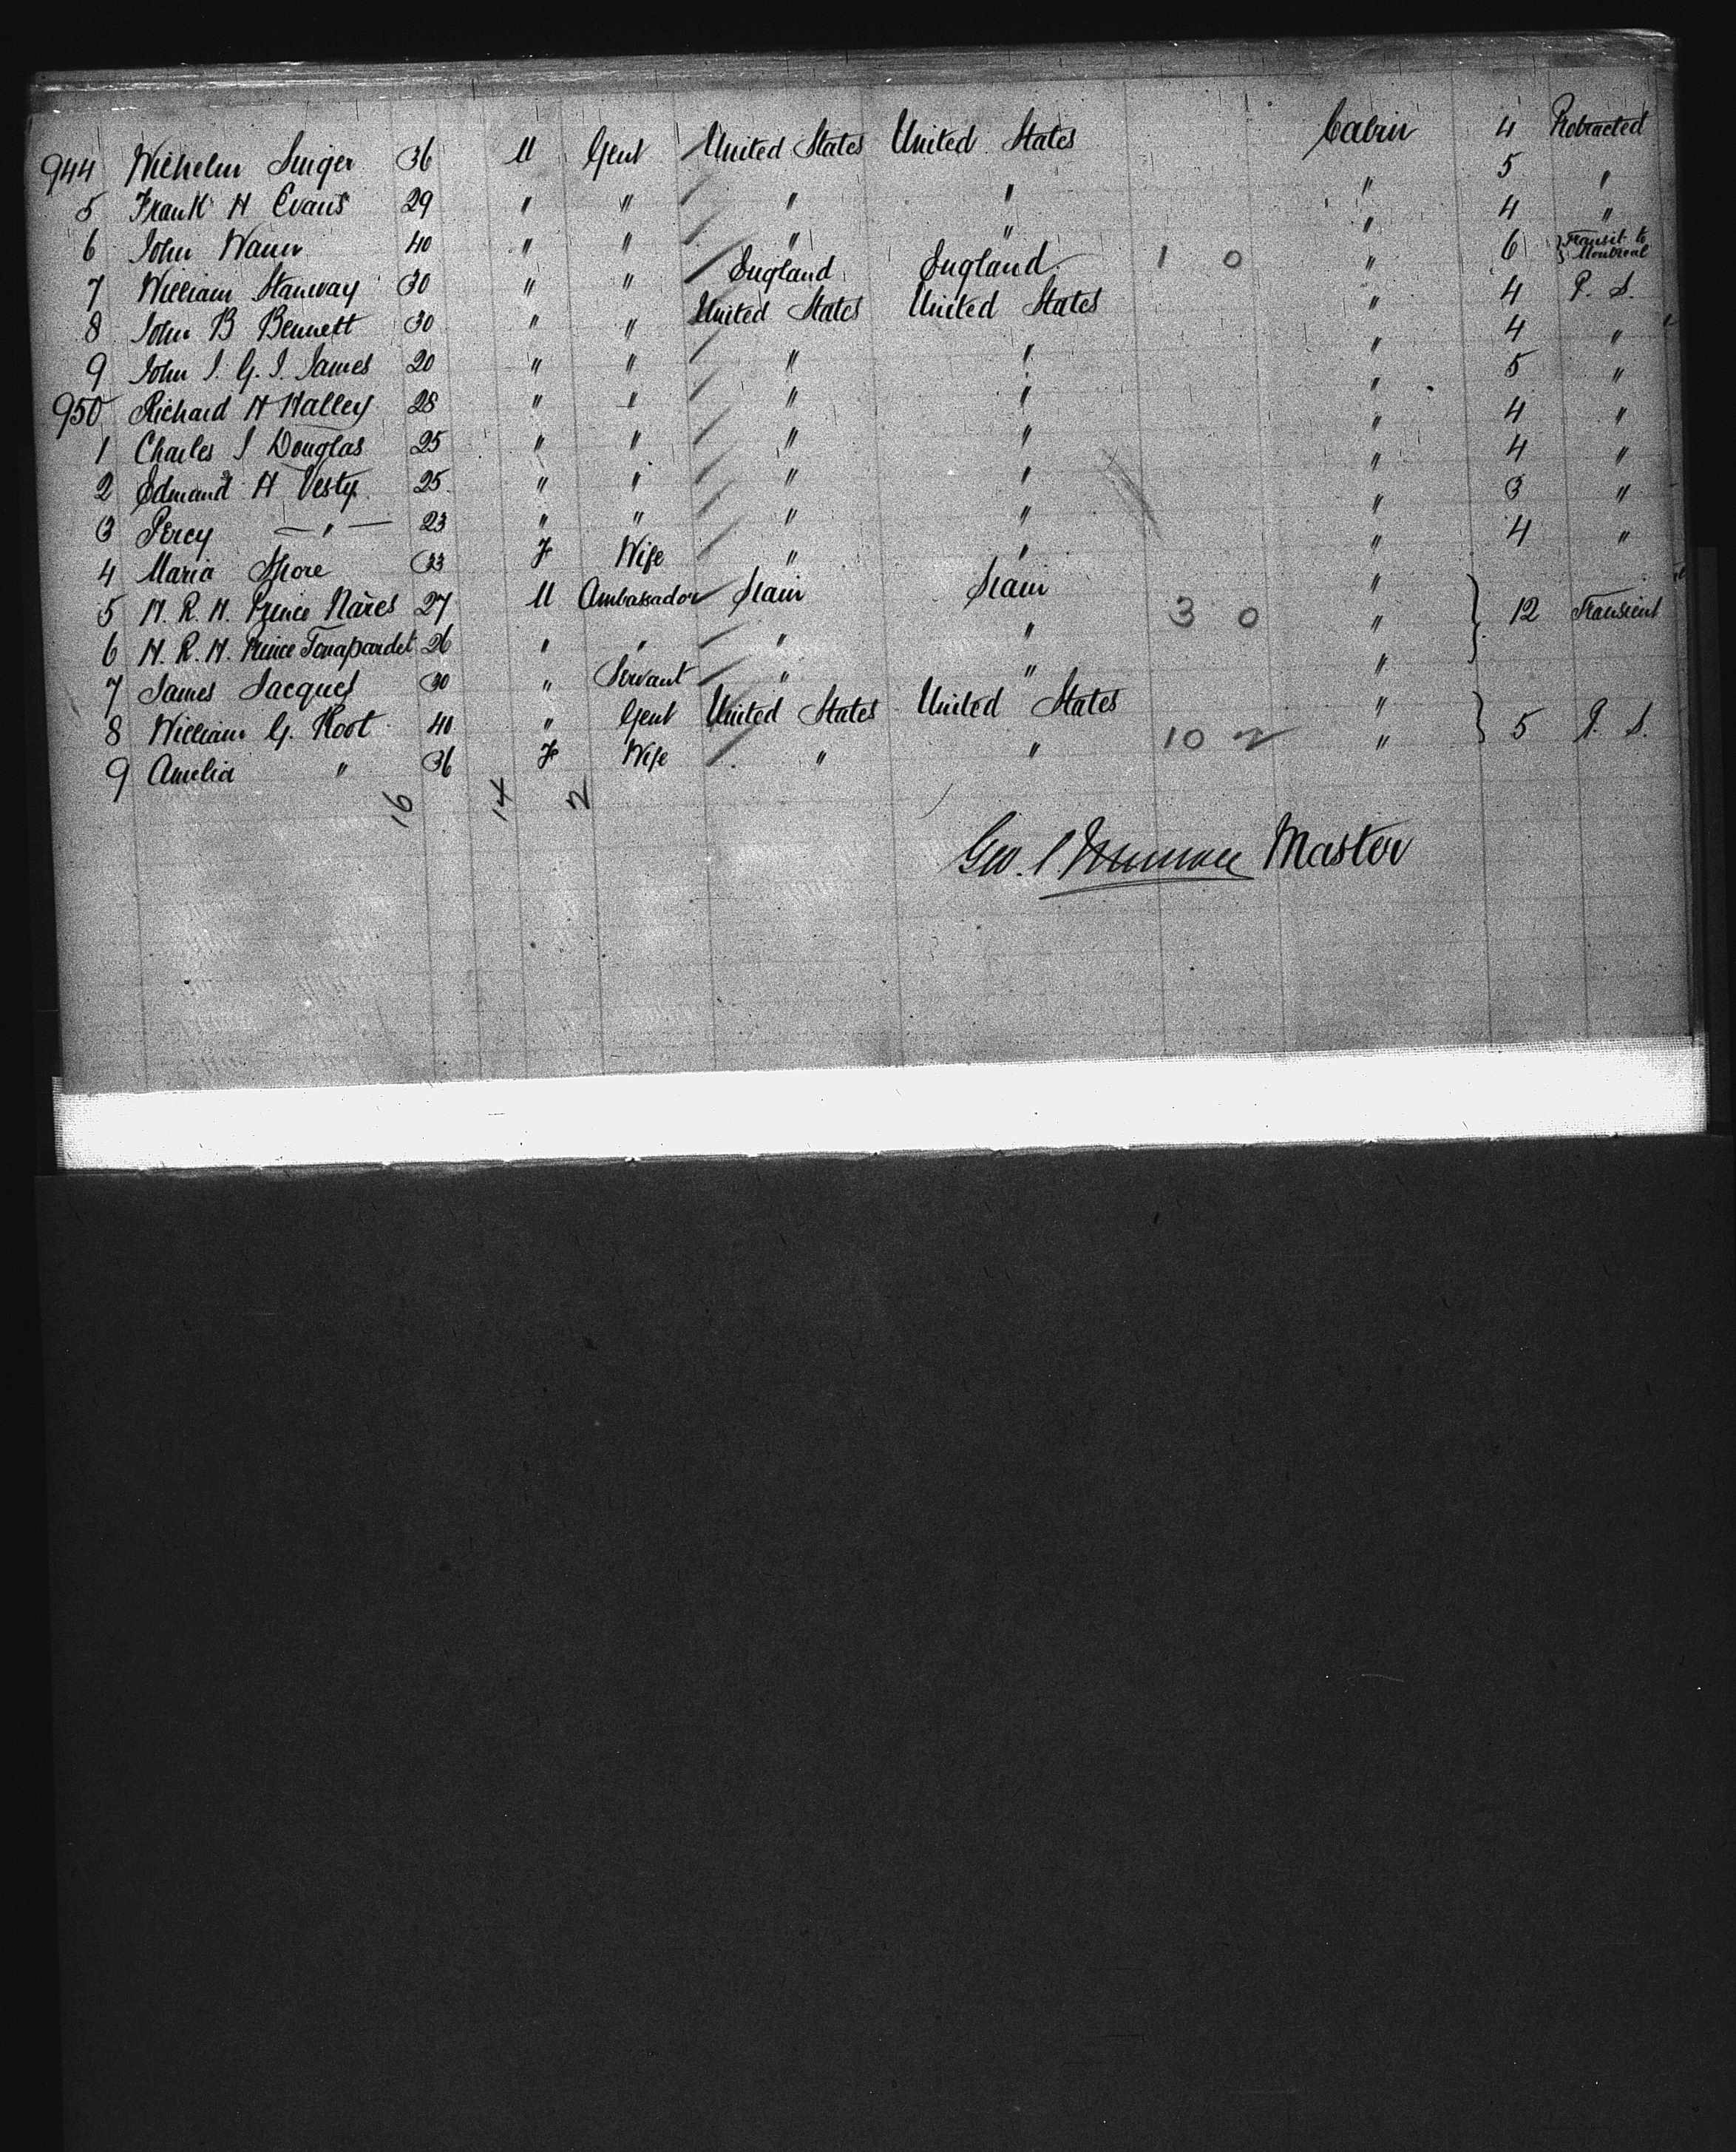 944 Wilhelm Singer 36 M Gent United States United States Cabin 4 Protracted
5 Frank H Evans 29 " " " " " 5 "
6 John Wann 40 " " " " " 4 "
7 William Stanway 30 " " England England 1 0 " 6 } Transit to Montreal
8 John B Bennett 30 " " United States United States " 4 P. S.
9 John J. G. J. James 20 " " " " " 4 "
950 Richard H Halley 28 " " " " " 5 "
1 Charles J Douglas 25 " " " " " 4 "
2 Edmund H Vesty 25 " " " " " 4 "
3 Percy — " — 23 " " " " " 3 "
4 Maria Shore 33 F Wife " " " 4 "
5 H. R. H. Prince Nares 27 M Ambassador Siam Siam "
6 H. R. H. Prince 26 " " " " 3 0 " } 12 Transient
7 James Jacques 30 " Servant " " "
8 William G. Root 40 " Gent United States United States "
9 Amelia " 36 F Wife " " 10 2 " } 5 P. S.
16 14 2
Geo. Master